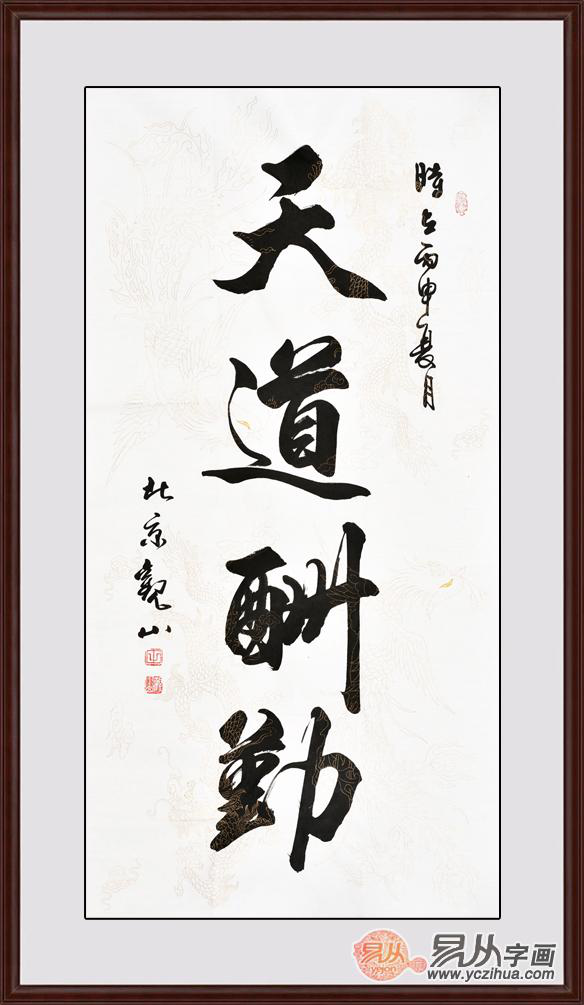 時在丙申夏月
天道酬勤
北京觀山
易从
yejon
易从字画
www.yczihua.com